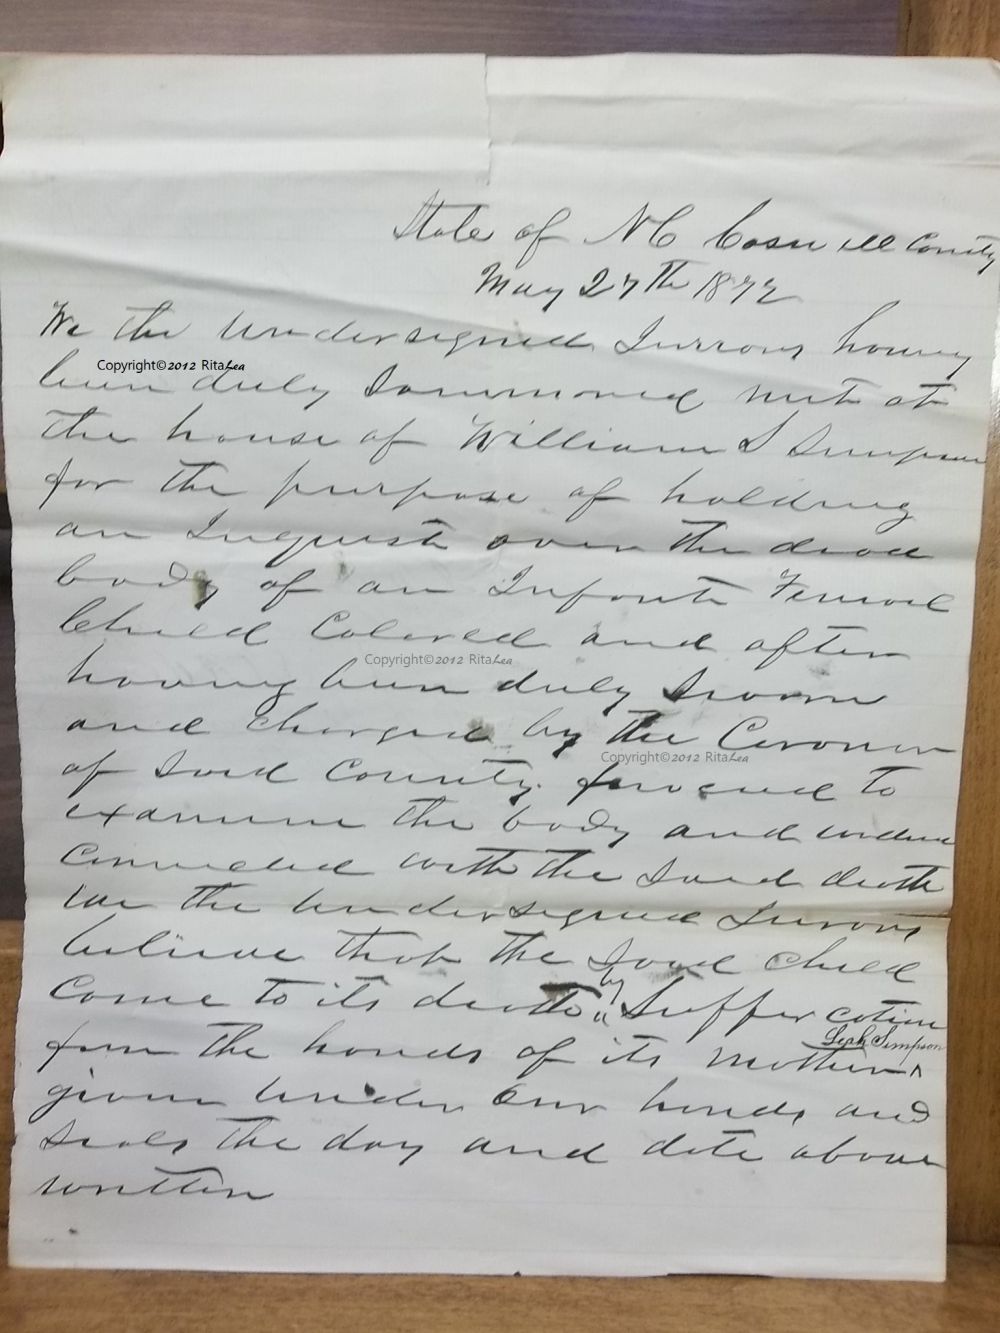 State of NC Caswell County
May 27th 1872
We the undersigned Jurrors haveing
Copyright©2012 RitaLea
been duly Sommoned met at
the house of William S Simpson
for the purpose of holding
an Inquest over the dead
body of an Infant Female
Child Colored and after
Copyright©2012 RitaLea
having been duly Sworn
and Charged by the Coroner
Copyright©2012 RitaLea
of Said County proceed to
examine the body and
Connected with the Said death
we the undersigned Jurors
believe that the Said child
by
Come to its death Suffercation
Leah Simpson
from the hands of its Mother
given under our hands and
Seals the day and date above
written